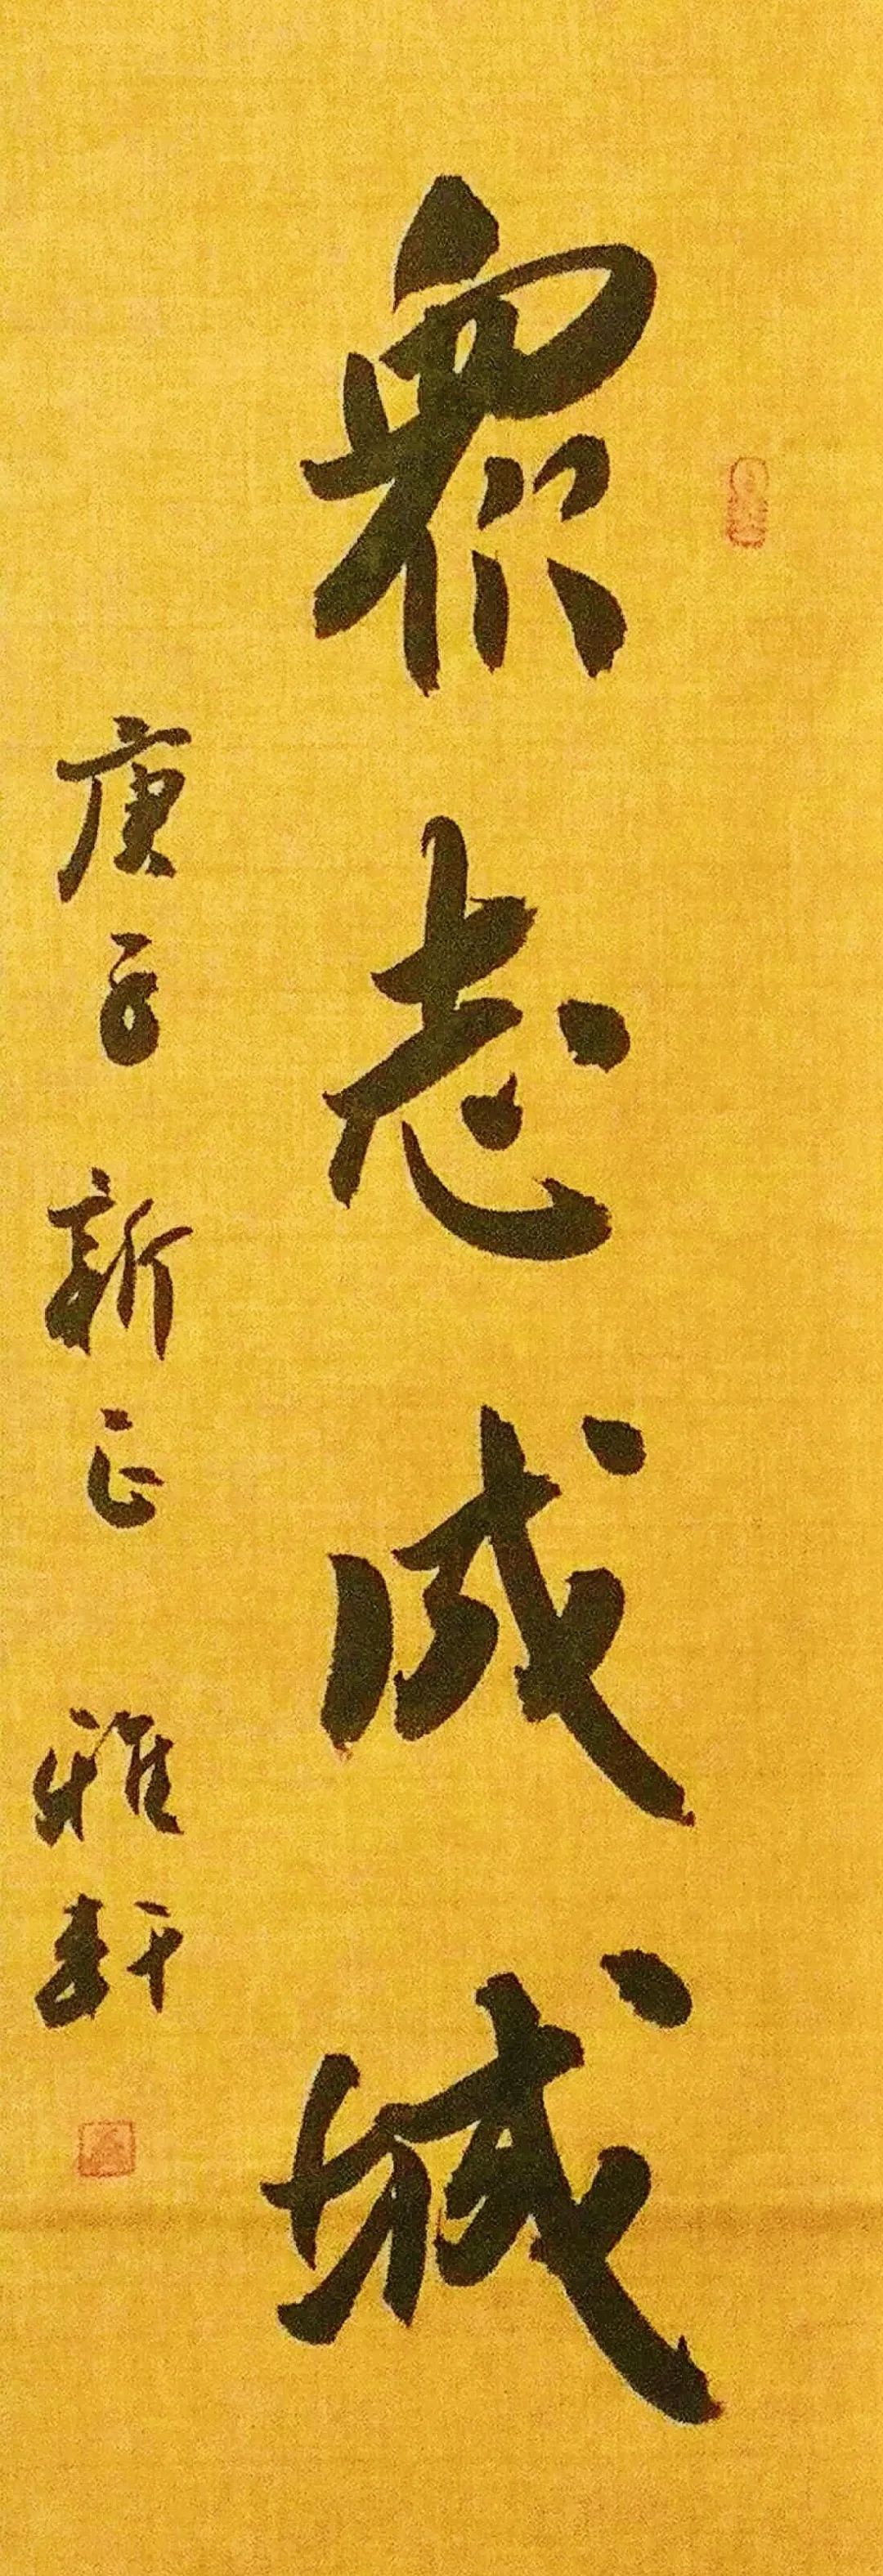 衆志成城
庚子新正 雅軒